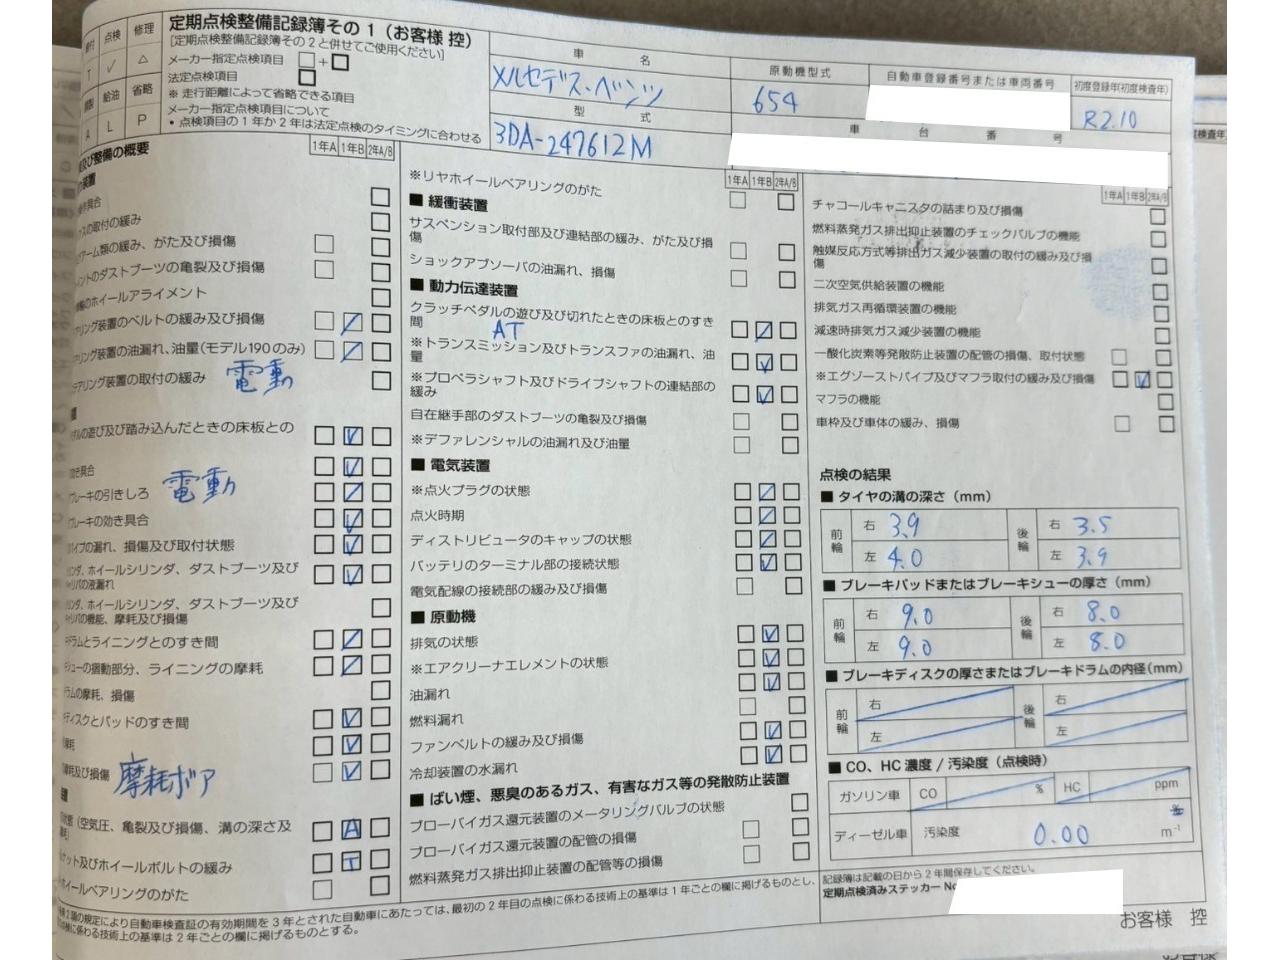 定期点検整備記録簿その1(お客様 控)
[定期点検整備記録簿その2と併せてご使用ください]
点検 修理
T ✓ △
給油 省略
A L P
メーカー指定点検項目 □+□
法定点検項目 □
※ 走行距離によって省略できる項目
メーカー指定点検項目について
• 点検項目の1年か2年は法定点検のタイミングに合わせる
車名
メルセデス・ベンツ
型式
3DA-247612M
原動機型式
654
自動車登録番号または車両番号
車台番号
初度登録年(初度検査年)
R2.10
及び整備の概要
1年A 1年B 2年A/B
装置
具合
の取付の緩み
アーム類の緩み、がた及び損傷
ントのダストブーツの亀裂及び損傷
のホイールアライメント
リング装置のベルトの緩み及び損傷
リング装置の油漏れ、油量(モデル190のみ)
アリング装置の取付の緩み 電動
ダルの遊び及び踏み込んだときの床板との
効き具合
ブレーキの引きしろ 電動
ブレーキの効き具合
パイプの漏れ、損傷及び取付状態
リンダ、ホイールシリンダ、ダストブーツ及び
キャリパの液漏れ
リンダ、ホイールシリンダ、ダストブーツ及び
キャリパの機能、摩耗及び損傷
ドラムとライニングとのすき間
シューの摺動部分、ライニングの摩耗
ラムの摩耗、損傷
ディスクとパッドのすき間
摩耗
摩耗及び損傷 摩耗ボア
状態(空気圧、亀裂及び損傷、溝の深さ及
ナット及びホイールボルトの緩み
ホイールベアリングのがた
1年A 1年B 2年A/B
※リヤホイールベアリングのがた
■ 緩衝装置
サスペンション取付部及び連結部の緩み、がた及び損
傷
ショックアブソーバの油漏れ、損傷
■ 動力伝達装置
クラッチペダルの遊び及び切れたときの床板とのすき
間 AT
※トランスミッション及びトランスファの油漏れ、油
量
※プロペラシャフト及びドライブシャフトの連結部の
緩み
自在継手部のダストブーツの亀裂及び損傷
※デファレンシャルの油漏れ及び油量
■ 電気装置
※点火プラグの状態
点火時期
ディストリビュータのキャップの状態
バッテリのターミナル部の接続状態
電気配線の接続部の緩み及び損傷
■ 原動機
排気の状態
※エアクリーナエレメントの状態
油漏れ
燃料漏れ
ファンベルトの緩み及び損傷
冷却装置の水漏れ
■ ばい煙、悪臭のあるガス、有害なガス等の発散防止装置
ブローバイガス還元装置のメータリングバルブの状態
ブローバイガス還元装置の配管の損傷
燃料蒸発ガス排出抑止装置の配管等の損傷
1年A 1年B 2年A/B
チャコールキャニスタの詰まり及び損傷
燃料蒸発ガス排出抑止装置のチェックバルブの機能
触媒反応方式等排出ガス減少装置の取付の緩み及び損
傷
二次空気供給装置の機能
排気ガス再循環装置の機能
減速時排気ガス減少装置の機能
一酸化炭素等発散防止装置の配管の損傷、取付状態
※エグゾーストパイプ及びマフラ取付の緩み及び損傷
マフラの機能
車枠及び車体の緩み、損傷
点検の結果
■ タイヤの溝の深さ(mm)
前輪 右 3.9 後輪 右 3.5
左 4.0 左 3.9
■ ブレーキパッドまたはブレーキシューの厚さ(mm)
前輪 右 9.0 後輪 右 8.0
左 9.0 左 8.0
■ ブレーキディスクの厚さまたはブレーキドラムの内径(mm)
前輪 右 後輪 右
左 左
■ CO、HC濃度/汚染度(点検時)
ガソリン車 CO % HC ppm
ディーゼル車 汚染度 0.00 % m⁻¹
記録簿は記載の日から2年間保存してください。
定期点検済みステッカー No
2項の規定により自動車検査証の有効期間を3年とされた自動車にあたっては、最初の2年目の点検に係わる技術上の基準は1年ごとの欄に掲げるものとし、
に係わる技術上の基準は2年ごとの欄に掲げるものとする。
お客様 控
検査年)